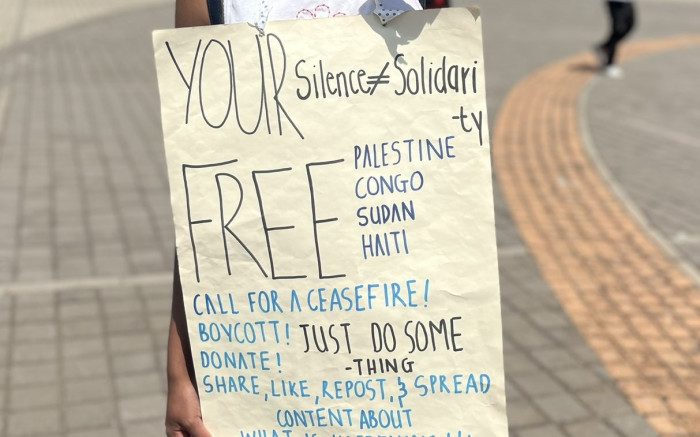 YOUR Silence≠Solidari
-ty
FREE PALESTINE
CONGO
SUDAN
HAITI
CALL FOR A CEASEFIRE!
BOYCOTT! JUST DO SOME
DONATE! -THING
SHARE, LIKE, REPOST, & SPREAD
CONTENT ABOUT
WHAT IS